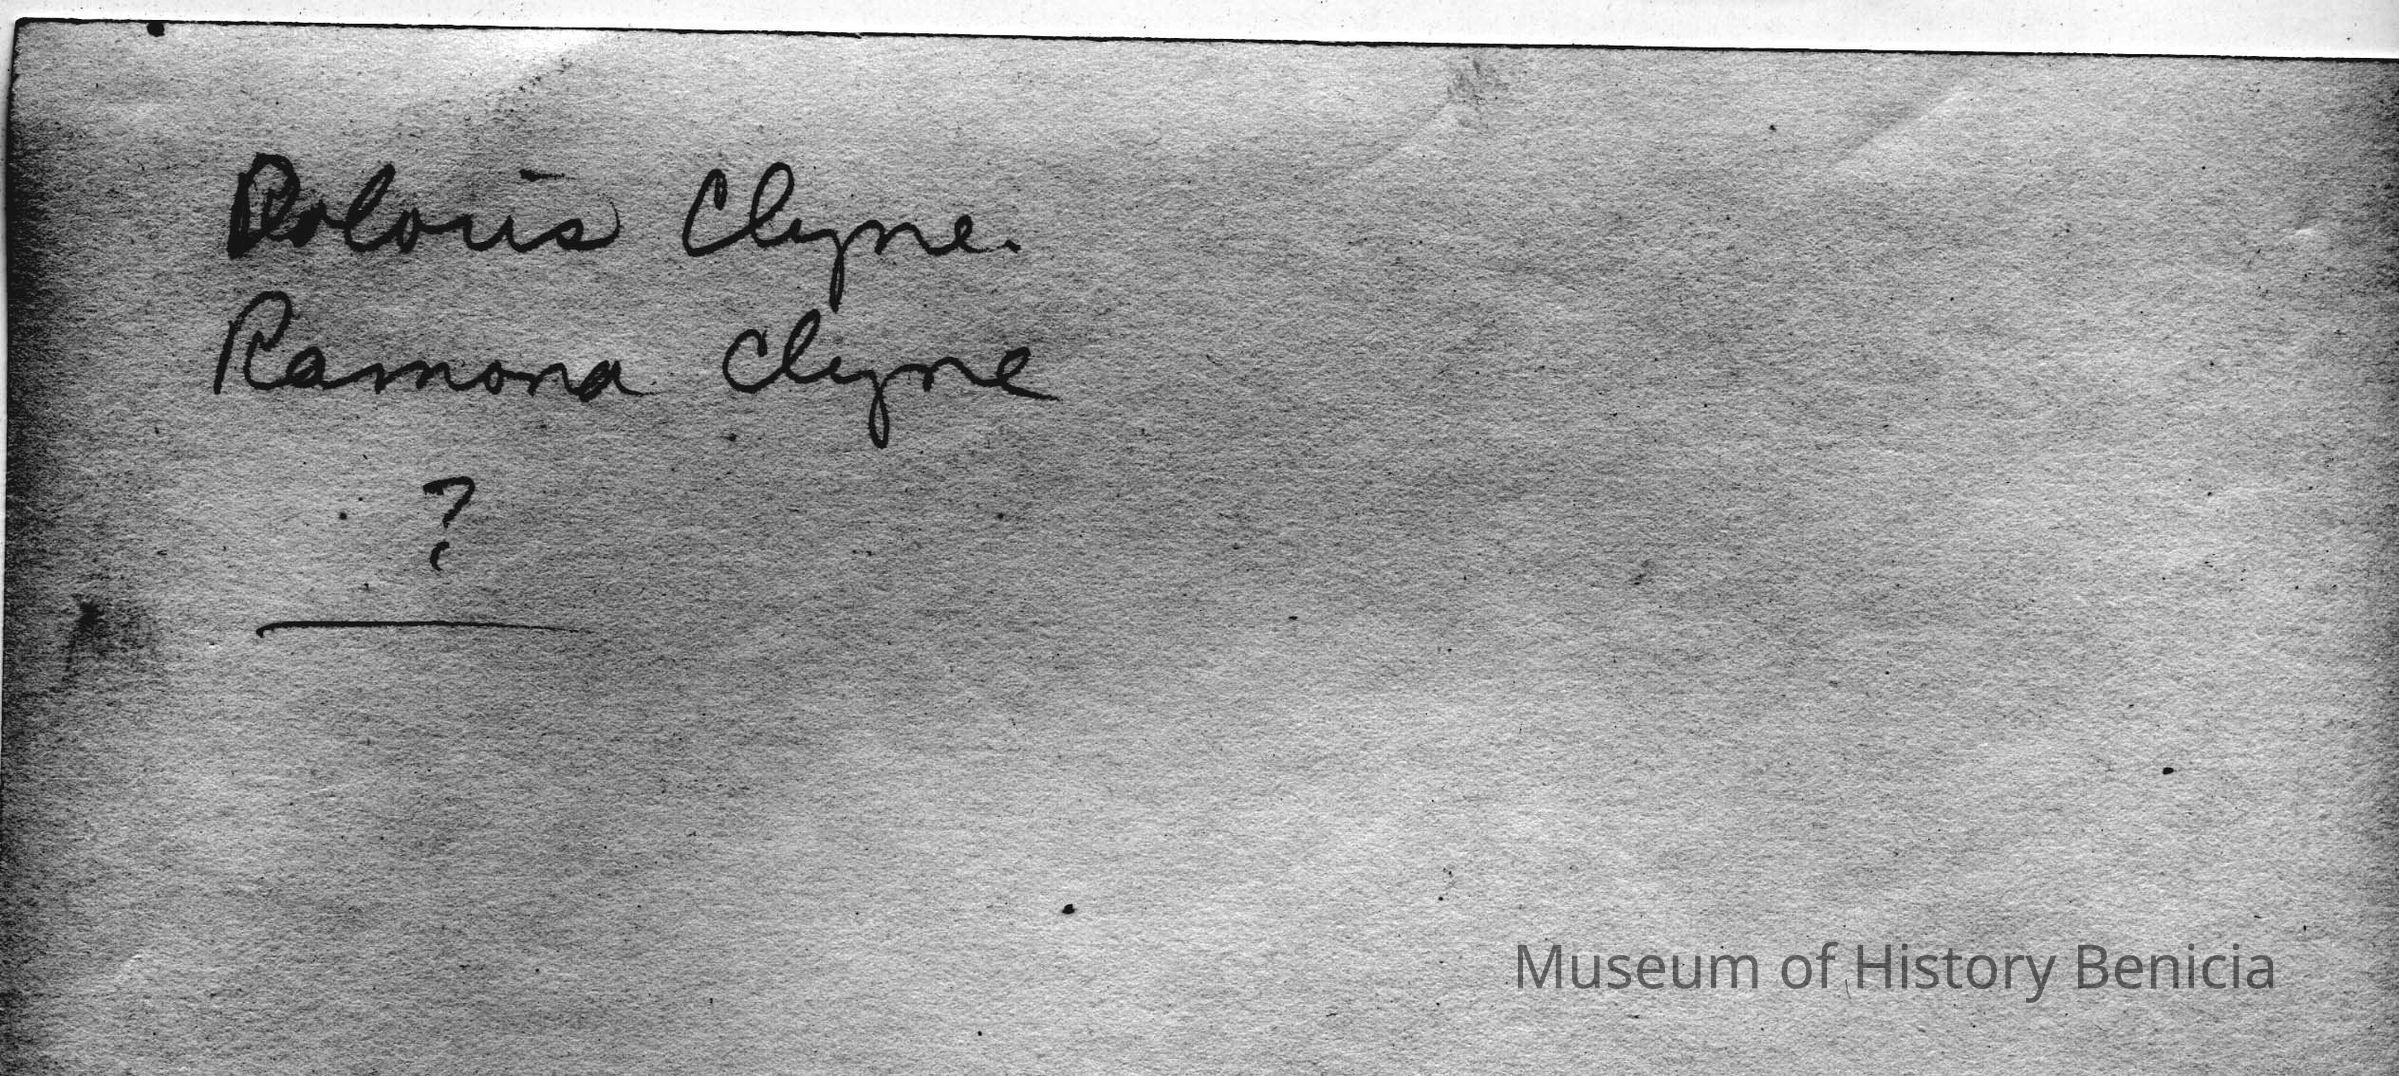 Doloris Clyne.
Ramona Clyne
?
Museum of History Benicia